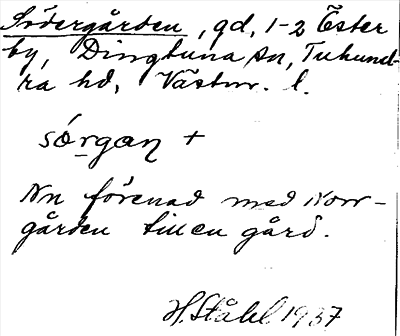 Södergården, gd, 1-2 Öster
by, Dingtuna sn, Tuhund-
ra hd, Västm. l.
sórgan +
Nu förenad med Norr-
gården till en gård.
H. Ståhl 1937